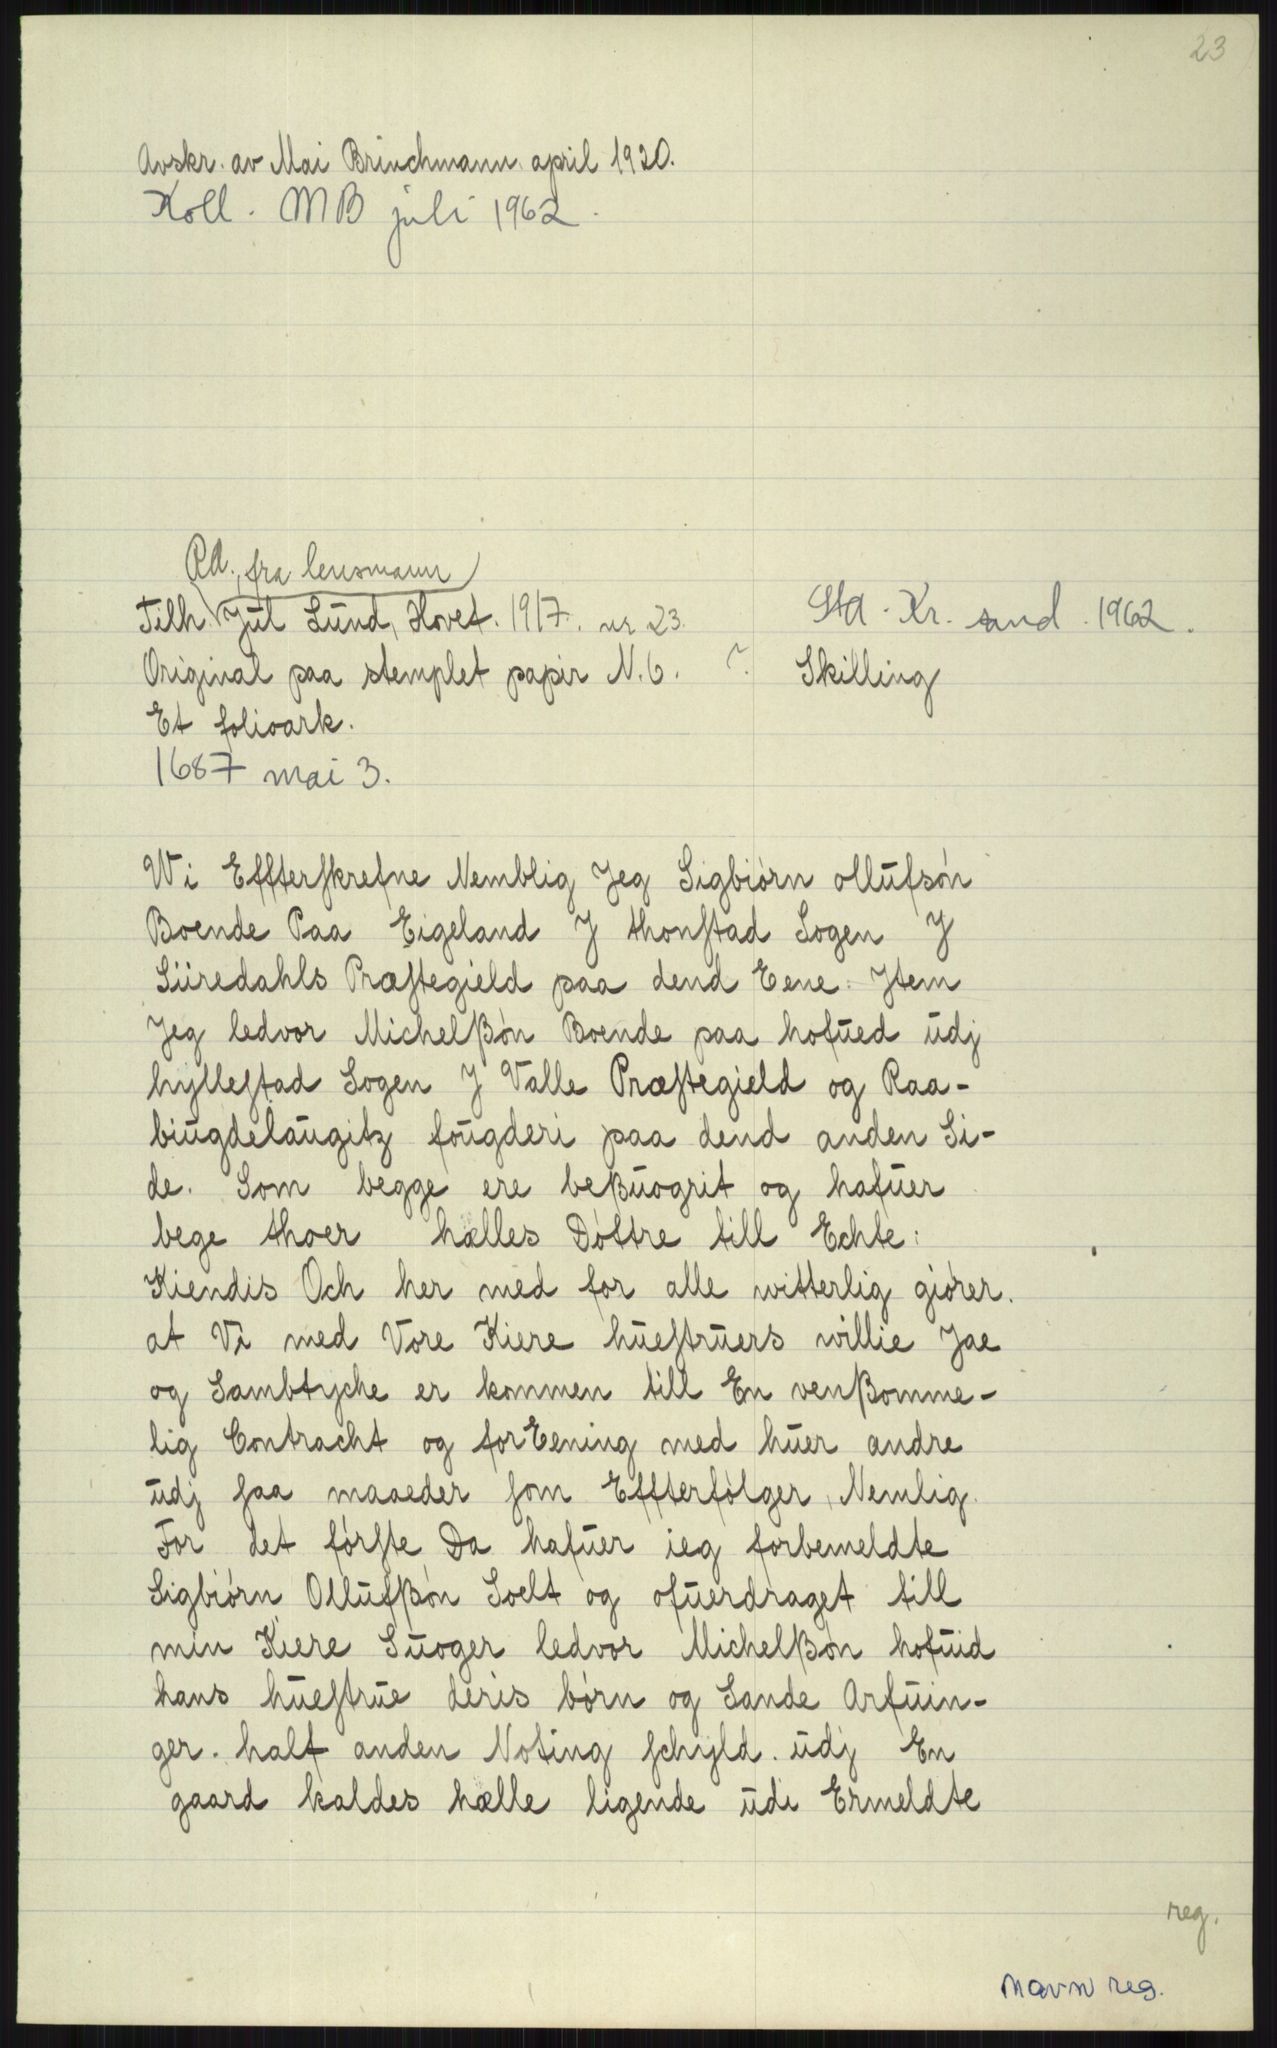 23
Avskr. av Mai Brinchmann april 1920.
Koll. MB juli 1962.
RA. fra lensmann
Tilh. Jul Lund, Hovet. 1917. nr 23.
StA. Kr. sand. 1962.
Original paa stemplet papir N. 6. ? Skilling
Et folioark.
1687 mai 3.
Wi Effterskrefne Nemblig Jeg Sigbiørn ollufsøn
Boende Paa Eigeland J thonstad Sogen J
Siiredahls Præstegield paa dend Eene: Jtem
Jeg ledvor Michelßøn Boende paa hofued udj
hyllestad Sogen J Valle Præstegield og Raa-
biugdelaugitz fougderi paa dend anden Si-
de. Som begge ere beßuogrit og hafuer
bege thoer hælles Døttre till Echte:
Kiendis Och her med for alle witterlig giører.
at Vi med Vore Kiere huestruers willie Jae
og Sambtyche er kommen till En venßomme-
lig Contracht og forEening med huer andre
udj saa maaeder som Effterfølger, Nemlig.
For det første Da hafuer ieg forbemeldte
Sigbiørn Ollufßøn Soelt og ofuerdraget till
min Kiere Suoger ledvor Michelßøn hofuid
hans huestrue deris børn og Sande Arfuin-
ger. halt anden Noting schyld. udj En
gaard kaldes hælle ligende udi Ermeldte
reg.
navn reg.